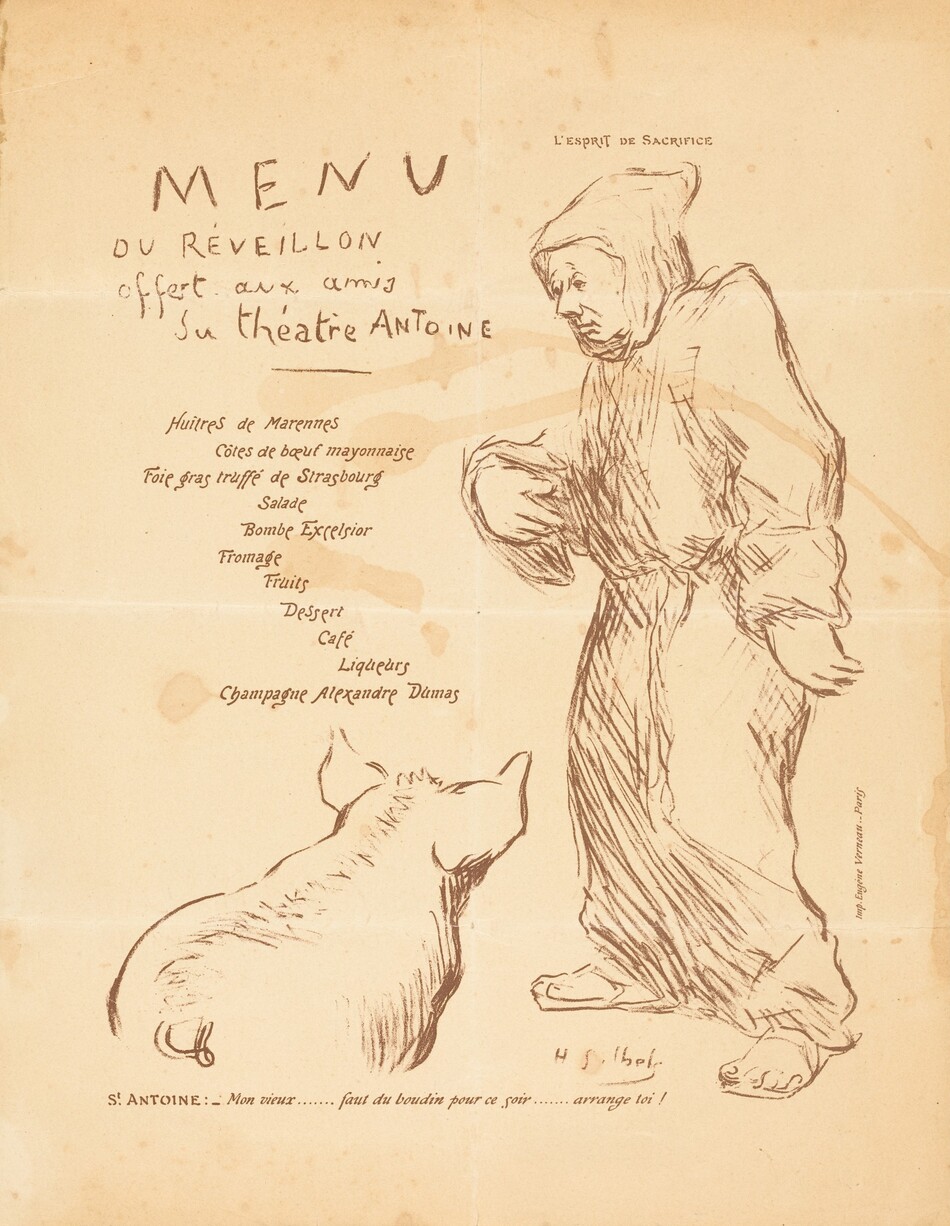 L'ESPRIT DE SACRIFICE
MENU
DU RÉVEILLON
offert aux amis
du théatre ANTOINE
Huîtres de Marennes
Côtes de bœuf mayonnaise
Foie gras truffé de Strasbourg
Salade
Bombe Excelsior
Fromage
Fruits
Dessert
Café
Liqueurs
Champagne Alexandre Dumas
Imp. Eugène Verneau.. Paris
H
St ANTOINE:_ Mon vieux....... faut du boudin pour ce soir....... arrange toi !